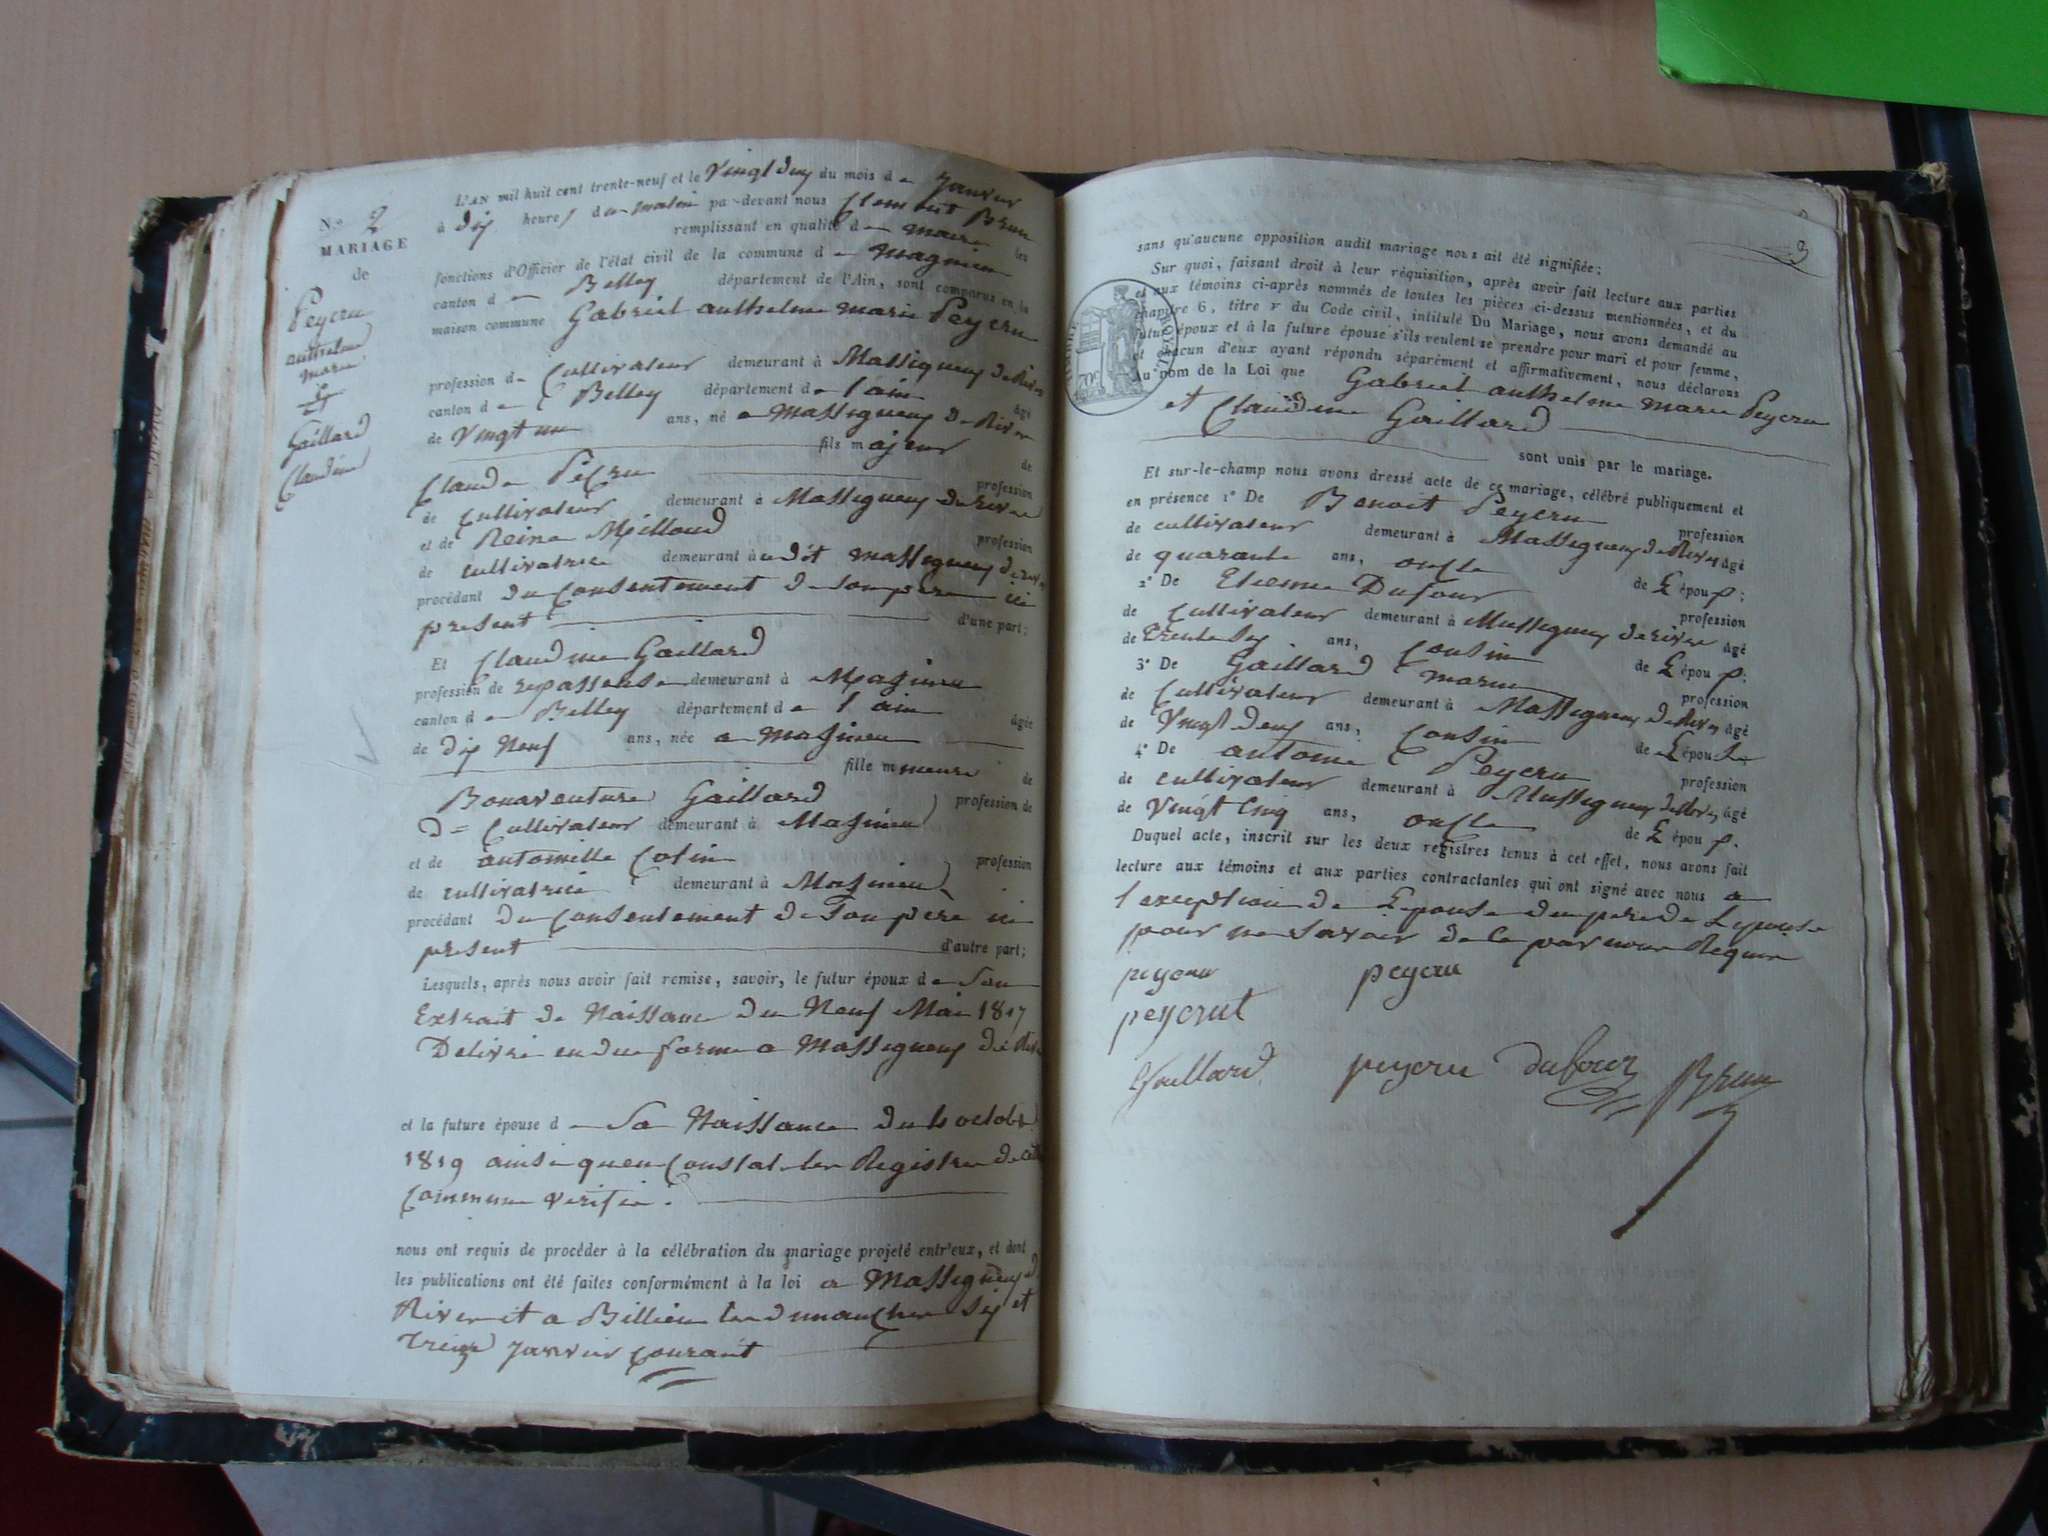 N.o 2
MARIAGE
de
Peycru
anthelme
marie
et
Gaillard
Claudine
L'AN mil huit cent trente-neuf et le Vingt deux du mois de Janvier
à dix heures du matin par-devant nous Clement Brun
remplissant en qualité de maire les
fonctions d'Officier de l'état civil de la commune de magnieu
canton de Belley département de l'Ain, sont comparus en la
maison commune Gabriel anthelme marie Peycru
profession de Cultivateur demeurant à Massigneux de Rives
canton de Belley département de l'ain âgé
de Vingt un ans, né a Massigneux de Rives
fils majeur de
Claude Peycru profession
de Cultivateur demeurant à Massigneux de rives
et de Reine Milloud profession
de cultivatrice demeurant à udit massigneux de rives
procédant du Consentement de son pere ici
present d'une part;
Et Claudine Gaillard
profession de repasseuse demeurant à Magnieu
canton de Belley département de l'ain âgée
de dix Neuf ans, née a magnieu
fille mineure de
Bonaventure Gaillard profession de
d= Cultivateur demeurant à Magnieu
et de antoinette Cotin profession
de cultivatrice demeurant à Magnieu
procédant du Consentement de Son père ici
present d'autre part;
Lesquels, après nous avoir fait remise, savoir, le futur époux de Son
Extrait de Naissance du Neuf Mai 1817
Delivré en due forme a Massigneux de Rive
et la future épouse de Sa Naissance du octobre
1819 ainsi quen Constate les Registre de cette
Commune Verifié.
nous ont requis de procéder à la célébration du mariage projeté entr'eux, et dont
les publications ont été faites conformément à la loi a Massigneux d
Rives et a Billieu les dimanches Six et
Treize Janvier Courant
2
sans qu'aucune opposition audit mariage nous ait été signifiée;
Sur quoi, faisant droit à leur réquisition, après avoir fait lecture aux parties
et aux témoins ci-après nommés de toutes les pièces ci-dessus mentionnées, et du
chapitre 6, titre V du Code civil, intitulé Du Mariage, nous avons demandé au
futur époux et à la future épouse s'ils veulent se prendre pour mari et pour femme,
et chacun d'eux ayant répondu séparément et affirmativement, nous déclarons
au nom de la Loi que Gabriel anthelme marie Peycru
et Claudine Gaillard
sont unis par le mariage.
TIMBRE ROYAL
70c
Et sur-le-champ nous avons dressé acte de ce mariage, célébré publiquement et
en présence 1° De Benoit Peycru profession
de cultivateur demeurant à Massigneux de Rives âgé
de quarante ans, oncle de L'époux;
2° De Etienne Dufour profession
de Cultivateur demeurant à Massigneux de rives âgé
de Trente Six ans, Cousin de L'époux;
3° De Gaillard marin profession
de Cultivateur demeurant à Massigneux de Rives âgé
de Vingt deux ans, Cousin de L'épouse
4° De antoine Peycru profession
de cultivateur demeurant à Massigneux de Rives âgé
de Vingt Cinq ans, oncle de L'époux.
Duquel acte, inscrit sur les deux registres tenus à cet effet, nous avons fait
lecture aux témoins et aux parties contractantes qui ont signé avec nous a
l'exception de L'epouse du pere de Lepouse
pour ne Savoir de ce par nous Requis
peycru peycru
peycrut
Gaillard peycru dufour Brun